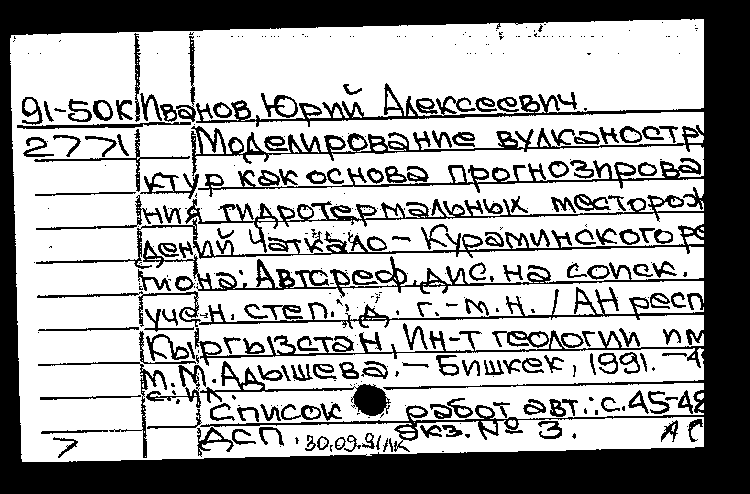 91-50К Иванов, Юрий Алексеевич.
2771 Моделирование вулканостру
ктур как основа прогнозирова
ния гидротермальных месторож
дений Чаткало-Кураминского ре
гиона: Автореф. дис. на соиск.
учен. степ. д. г.-м.н. / АН респ
Кыргызстан, Ин-т геологии им
М.М. Адышева. - Бишкек, 1991. - 4
с.: ил.
Список работ авт.: с. 45-48
ДСП. 30.09.91 экз. № 3. АС